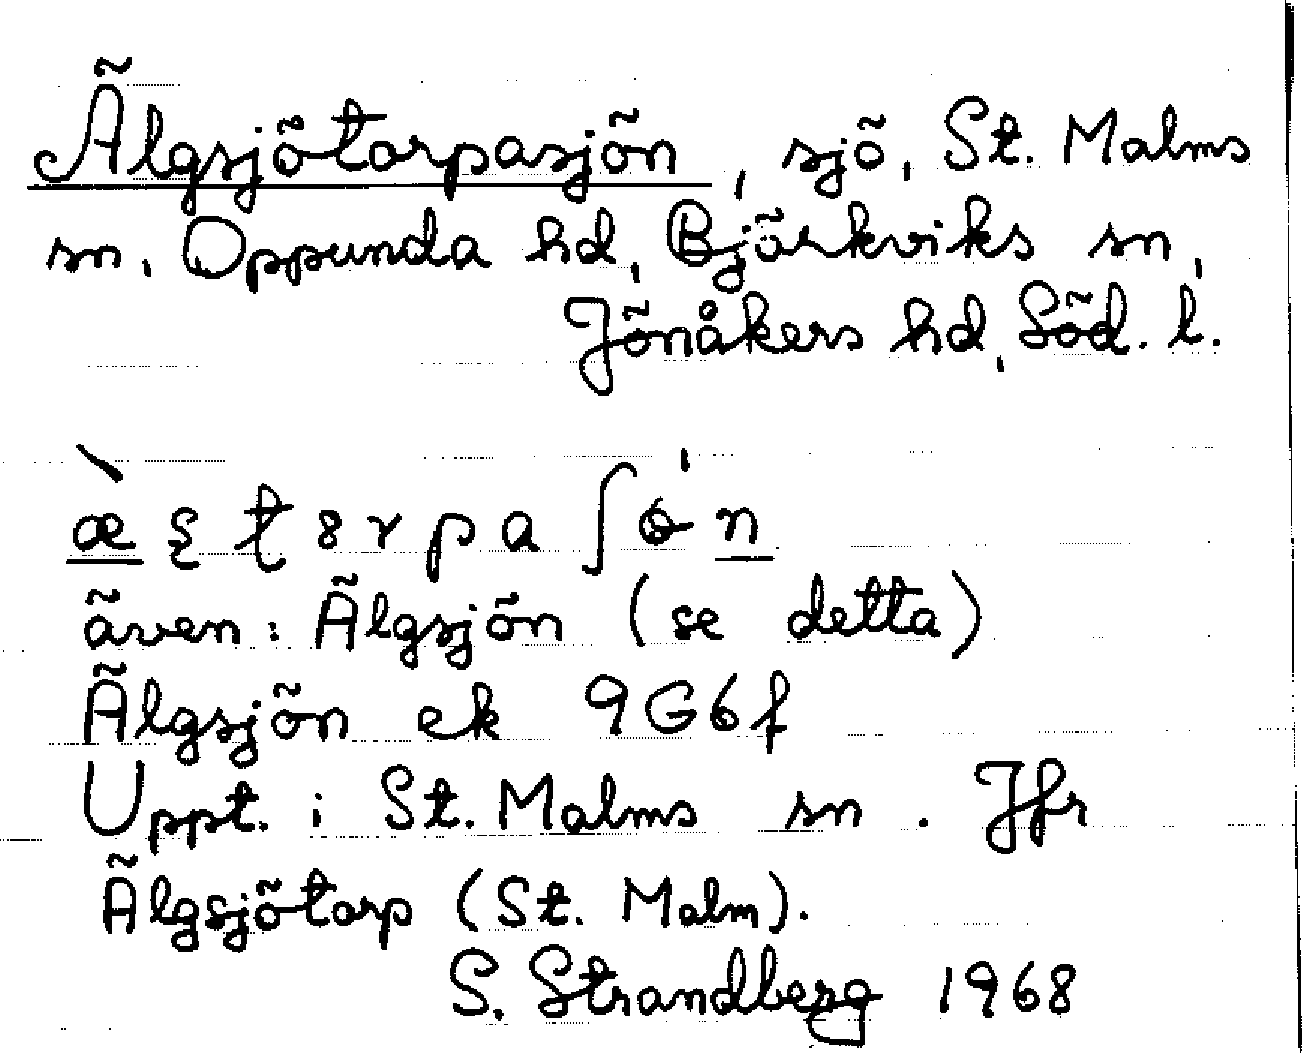 Älgsjötorpasjön, sjö, St. Malms
sn, Oppunda hd, Björkviks sn,
Jönåkers hd, Söd. l.
även: Älgsjön (se detta)
Älgsjön ek 9G6f
Uppt. i St. Malms sn. Jfr
Älgsjötorp (St. Malm).
S. Strandberg 1968